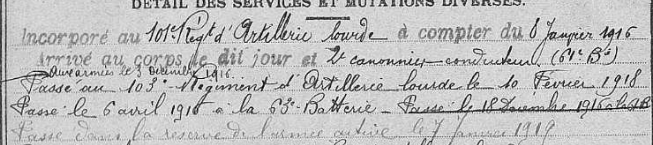 DÉTAIL DES SERVICES ET MUTATIONS DIVERSES.
Incorporé au 101e Régt d'Artillerie lourde à compter du 8 Janvier 1916
Arrivé au corps le dit jour et 2e canonnier conducteur (61e Bie)
Aux armées le 3 décembre 1916.
Passé au 103e Régiment d'Artillerie lourde le 10 Février 1918
Passé le 6 avril 1916 à la 63e Batterie - Passé le 18 Novembre 1916
Passé dans la réserve de l'armée active le 7 Janvier 1919